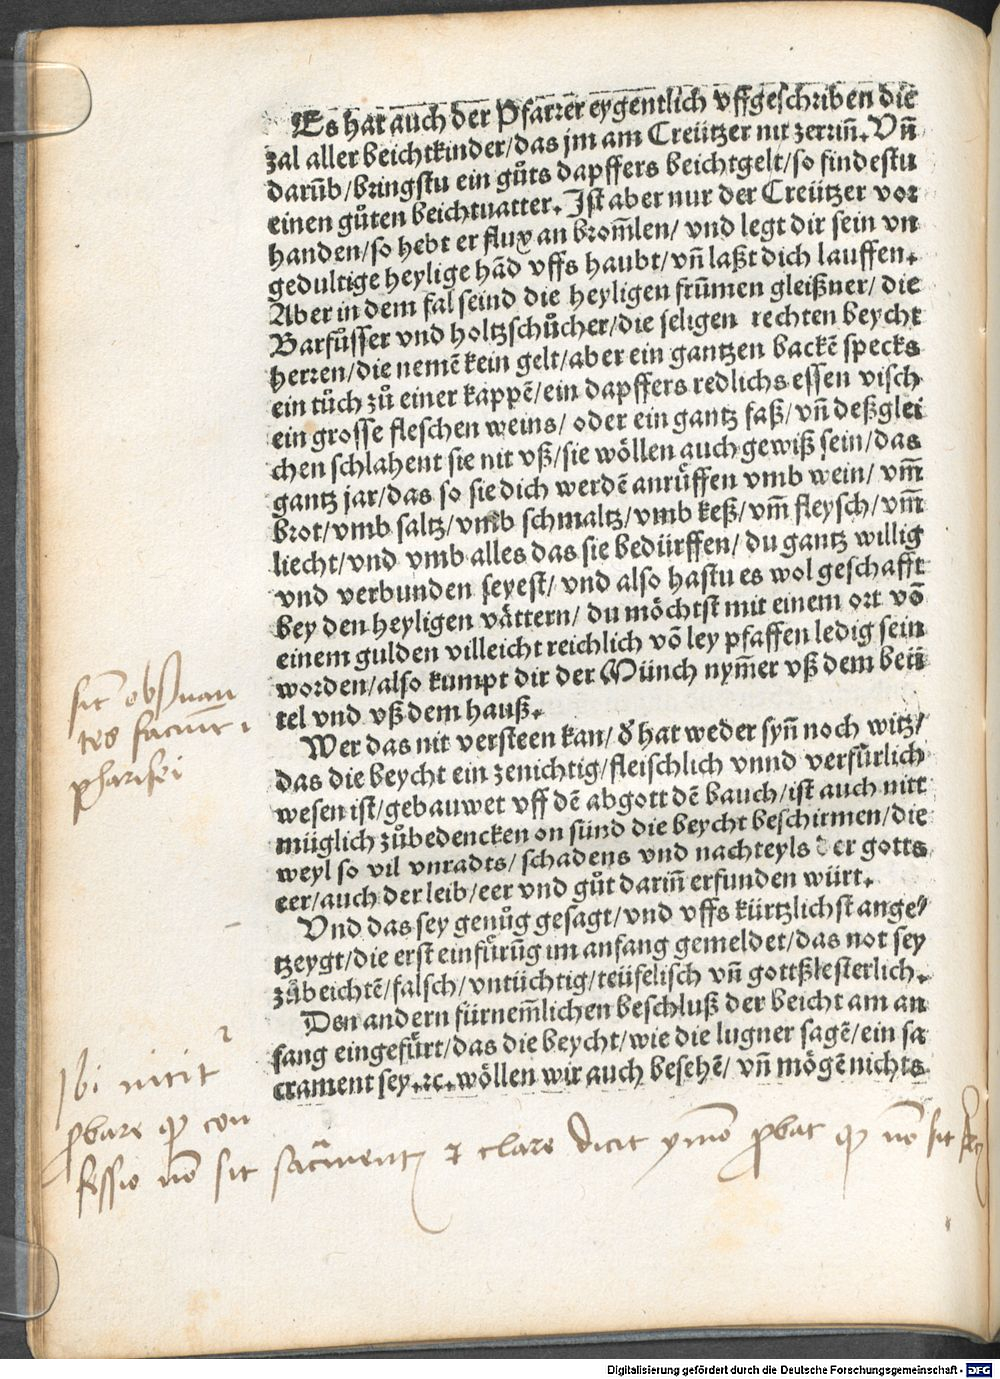 Es hat auch der Pfarrer eygentlich vffgeschriben die
zal aller beichtkinder/das jm am Creützer nit zerriñ. Vñ
darũb/bringstu ein gůts dapffers beichtgelt/so findestu
einen gůten beichtuatter. Ist aber nur der Creützer vor
handen/so hebt er flux an brom̃len/ vnd legt dir sein vn
gedultige heylige hãd vffs haubt/vñ laßt dich lauffen.
Aber in dem fal seind die heyligen frũmen gleißner/ die
Barfůsser vnd holtzschůcher/die seligen rechten beycht
herren/die nemẽ kein gelt/aber ein gantzen backẽ specks
ein tůch zů einer kappẽ/ein dapffers redlichs essen visch
ein grosse fleschen weins/ oder ein gantz faß/vñ deßglei
chen schlahent sie nit vß/sie wöllen auch gewiß sein/das
gantz jar/das so sie dich werdẽ anrůffen vmb wein/ vm̃
brot/vmb saltz/vmb schmaltz/vmb keß/vm̃ fleysch/vm̃
liecht/vnd vmb alles das sie bedürffen/ du gantz willig
vnd verbunden seyest/ vnd also hastu es wol geschafft
bey den heyligen vättern/ du möchtst mit einem ort võ
einem gulden villeicht reichlich võ ley pfaffen ledig sein
worden/also kumpt dir der Münch nym̃er vß dem beü
tel vnd vß dem hauß.
Wer das nit versteen kan/ď hat weder syñ noch witz/
das die beycht ein zenichtig/fleischlich vnnd verfürlich
wesen ist/gebauwet vff dẽ abgott dẽ bauch/ist auch nitt
müglich zůbedencken on sünd die beycht beschirmen/die
weyl so vil vnradts/ schadens vnd nachteyls der gotts
eer/auch der leib/eer vnd gůt dariñ erfunden würt.
Vnd das sey genůg gesagt/vnd vffs kürtzlichst ange⸗
tzeygt/die erst einfůrũg im anfang gemeldet/das not sey
zůbeichtẽ/falsch/vntüchtig/teüfelisch vñ gottßlesterlich.
Den andern fürnem̃lichen beschluß der beicht am an
fang eingefůrt/das die beycht/wie die lugner sagẽ/ein sa
crament sey.ꝛc.wöllen wir auch besehẽ/ vñ mögẽ nichts
sic̃ obs̃uan
tes faciũt
pharisei
Ibi nitit᷑
ꝓbare ꝙ con
fessio nõ sit sacr̃ment᷑ ⁊ clare dicit ymõ ꝓbat ꝙ nõ sit
Digitalisierung gefördert durch die Deutsche Forschungsgemeinschaft - DFG